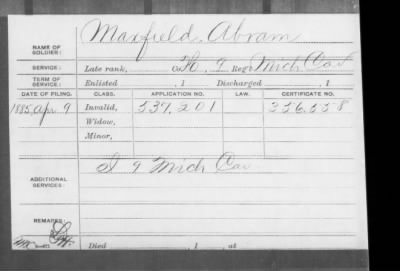 Maxfield, Abram
NAME OF SOLDIER:
SERVICE: Late rank, Co. H, 9 Reg't Mich Cav
TERM OF SERVICE: Enlisted , 1 Discharged , 1
DATE OF FILING. CLASS. APPLICATION NO. LAW. CERTIFICATE NO.
1885, Apr 9 Invalid, 537,201 356,558
Widow,
Minor,
9 Mich Cav
ADDITIONAL SERVICES:
REMARKS:
Died , 1 , at